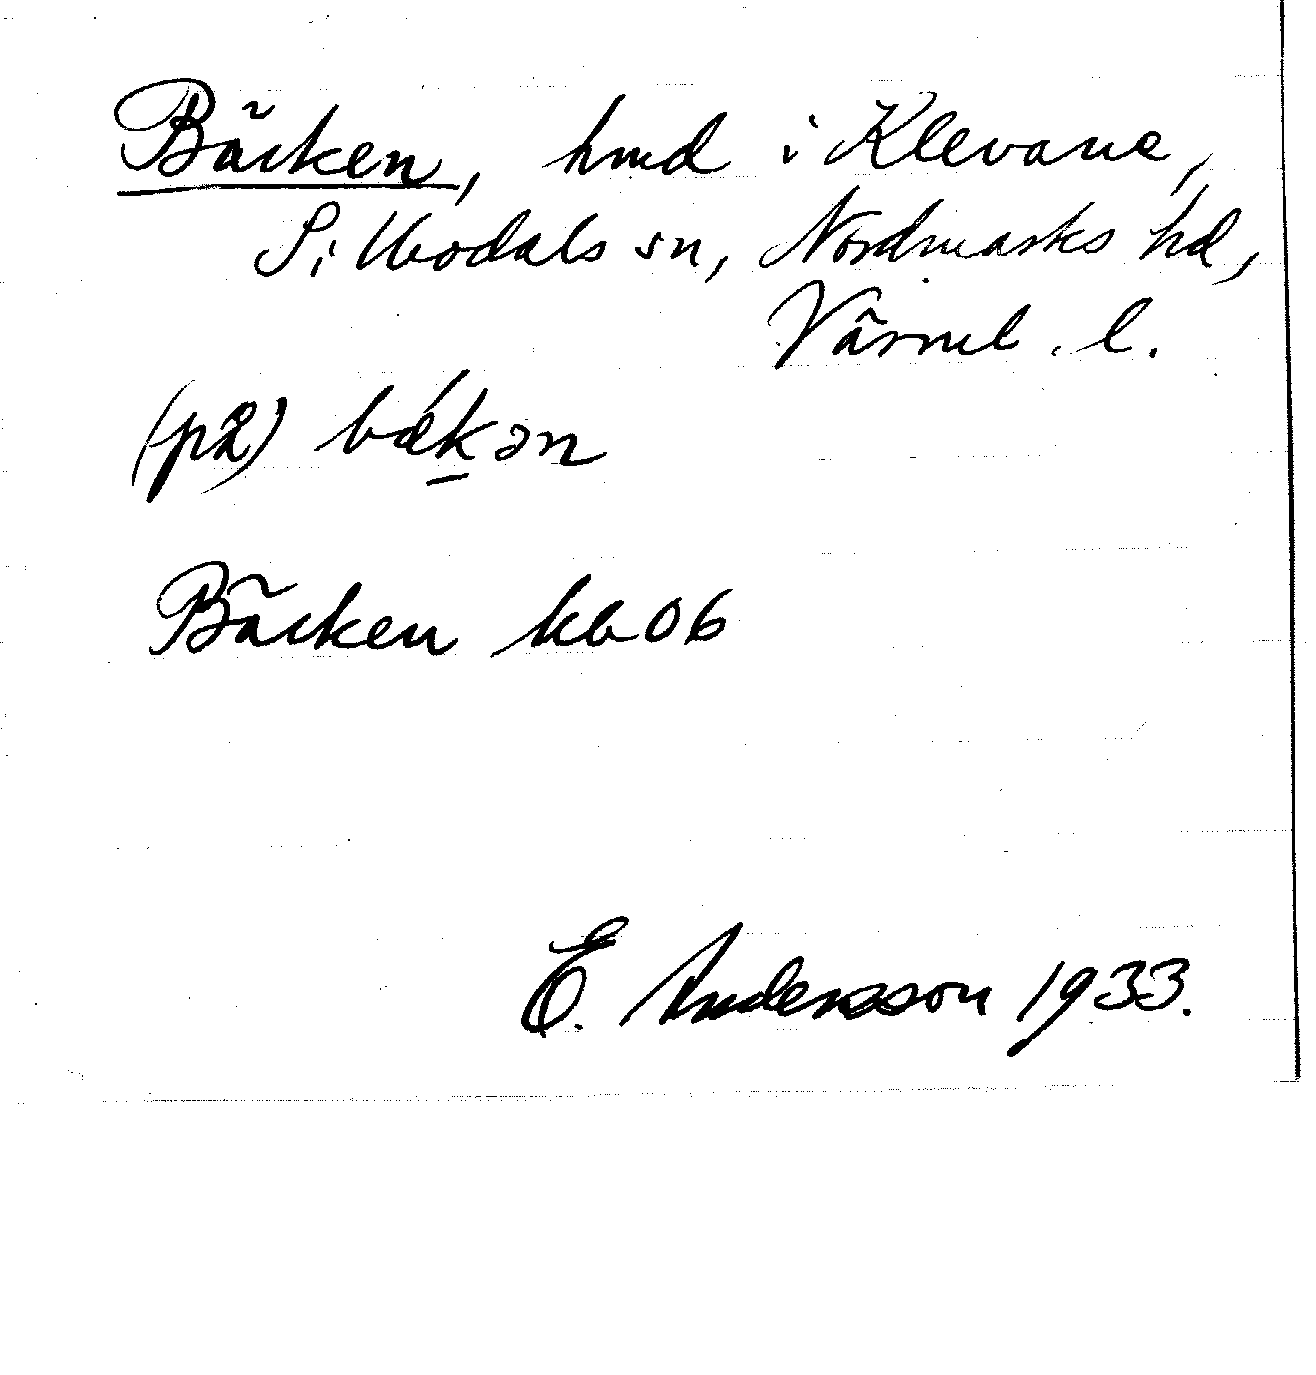 Bäcken, hmd i Klevane,
Sillbodals sn, Nordmarks hd,
Värml. l.
(på) bǽk̲ən
Bäcken kb 06
E. Andersson 1933.